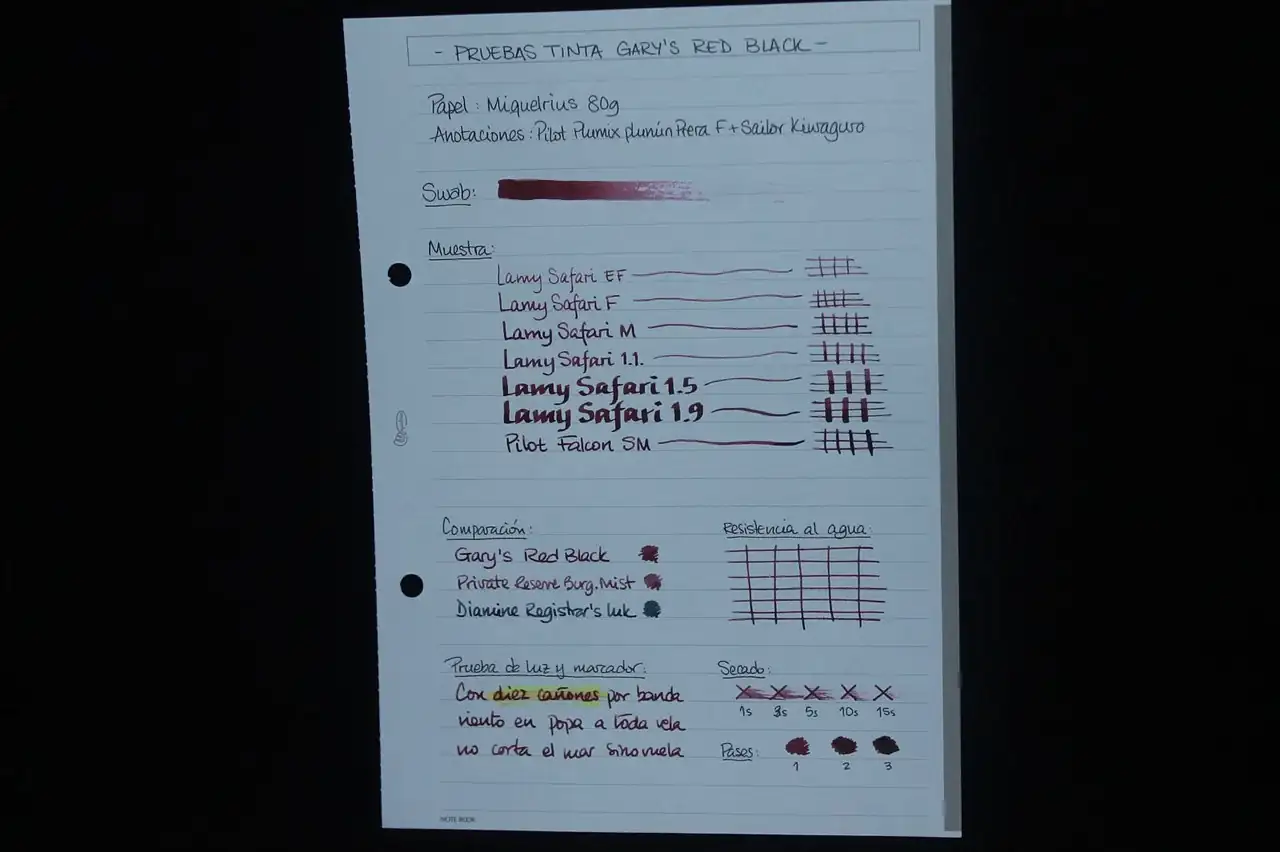 - PRUEBAS TINTA GARY'S RED BLACK -
Papel: Miquelrius 80g
Anotaciones: Pilot Plumix plumín Pera F + Sailor Kiwaguro
Swab:
Muestra:
Lamy Safari EF
Lamy Safari F
Lamy Safari M
Lamy Safari 1.1.
Lamy Safari 1.5
Lamy Safari 1.9
Pilot Falcon SM
Comparación:
Gary's Red Black
Private Reserve Burg. Mist
Diamine Registrar's Ink
Resistencia al agua:
Prueba de luz y marcador:
Con diez cañones por banda
viento en popa a toda vela
no corta el mar sino vuela
Secado:
1s 3s 5s 10s 15s
Pases:
1 2 3
NOTE BOOK